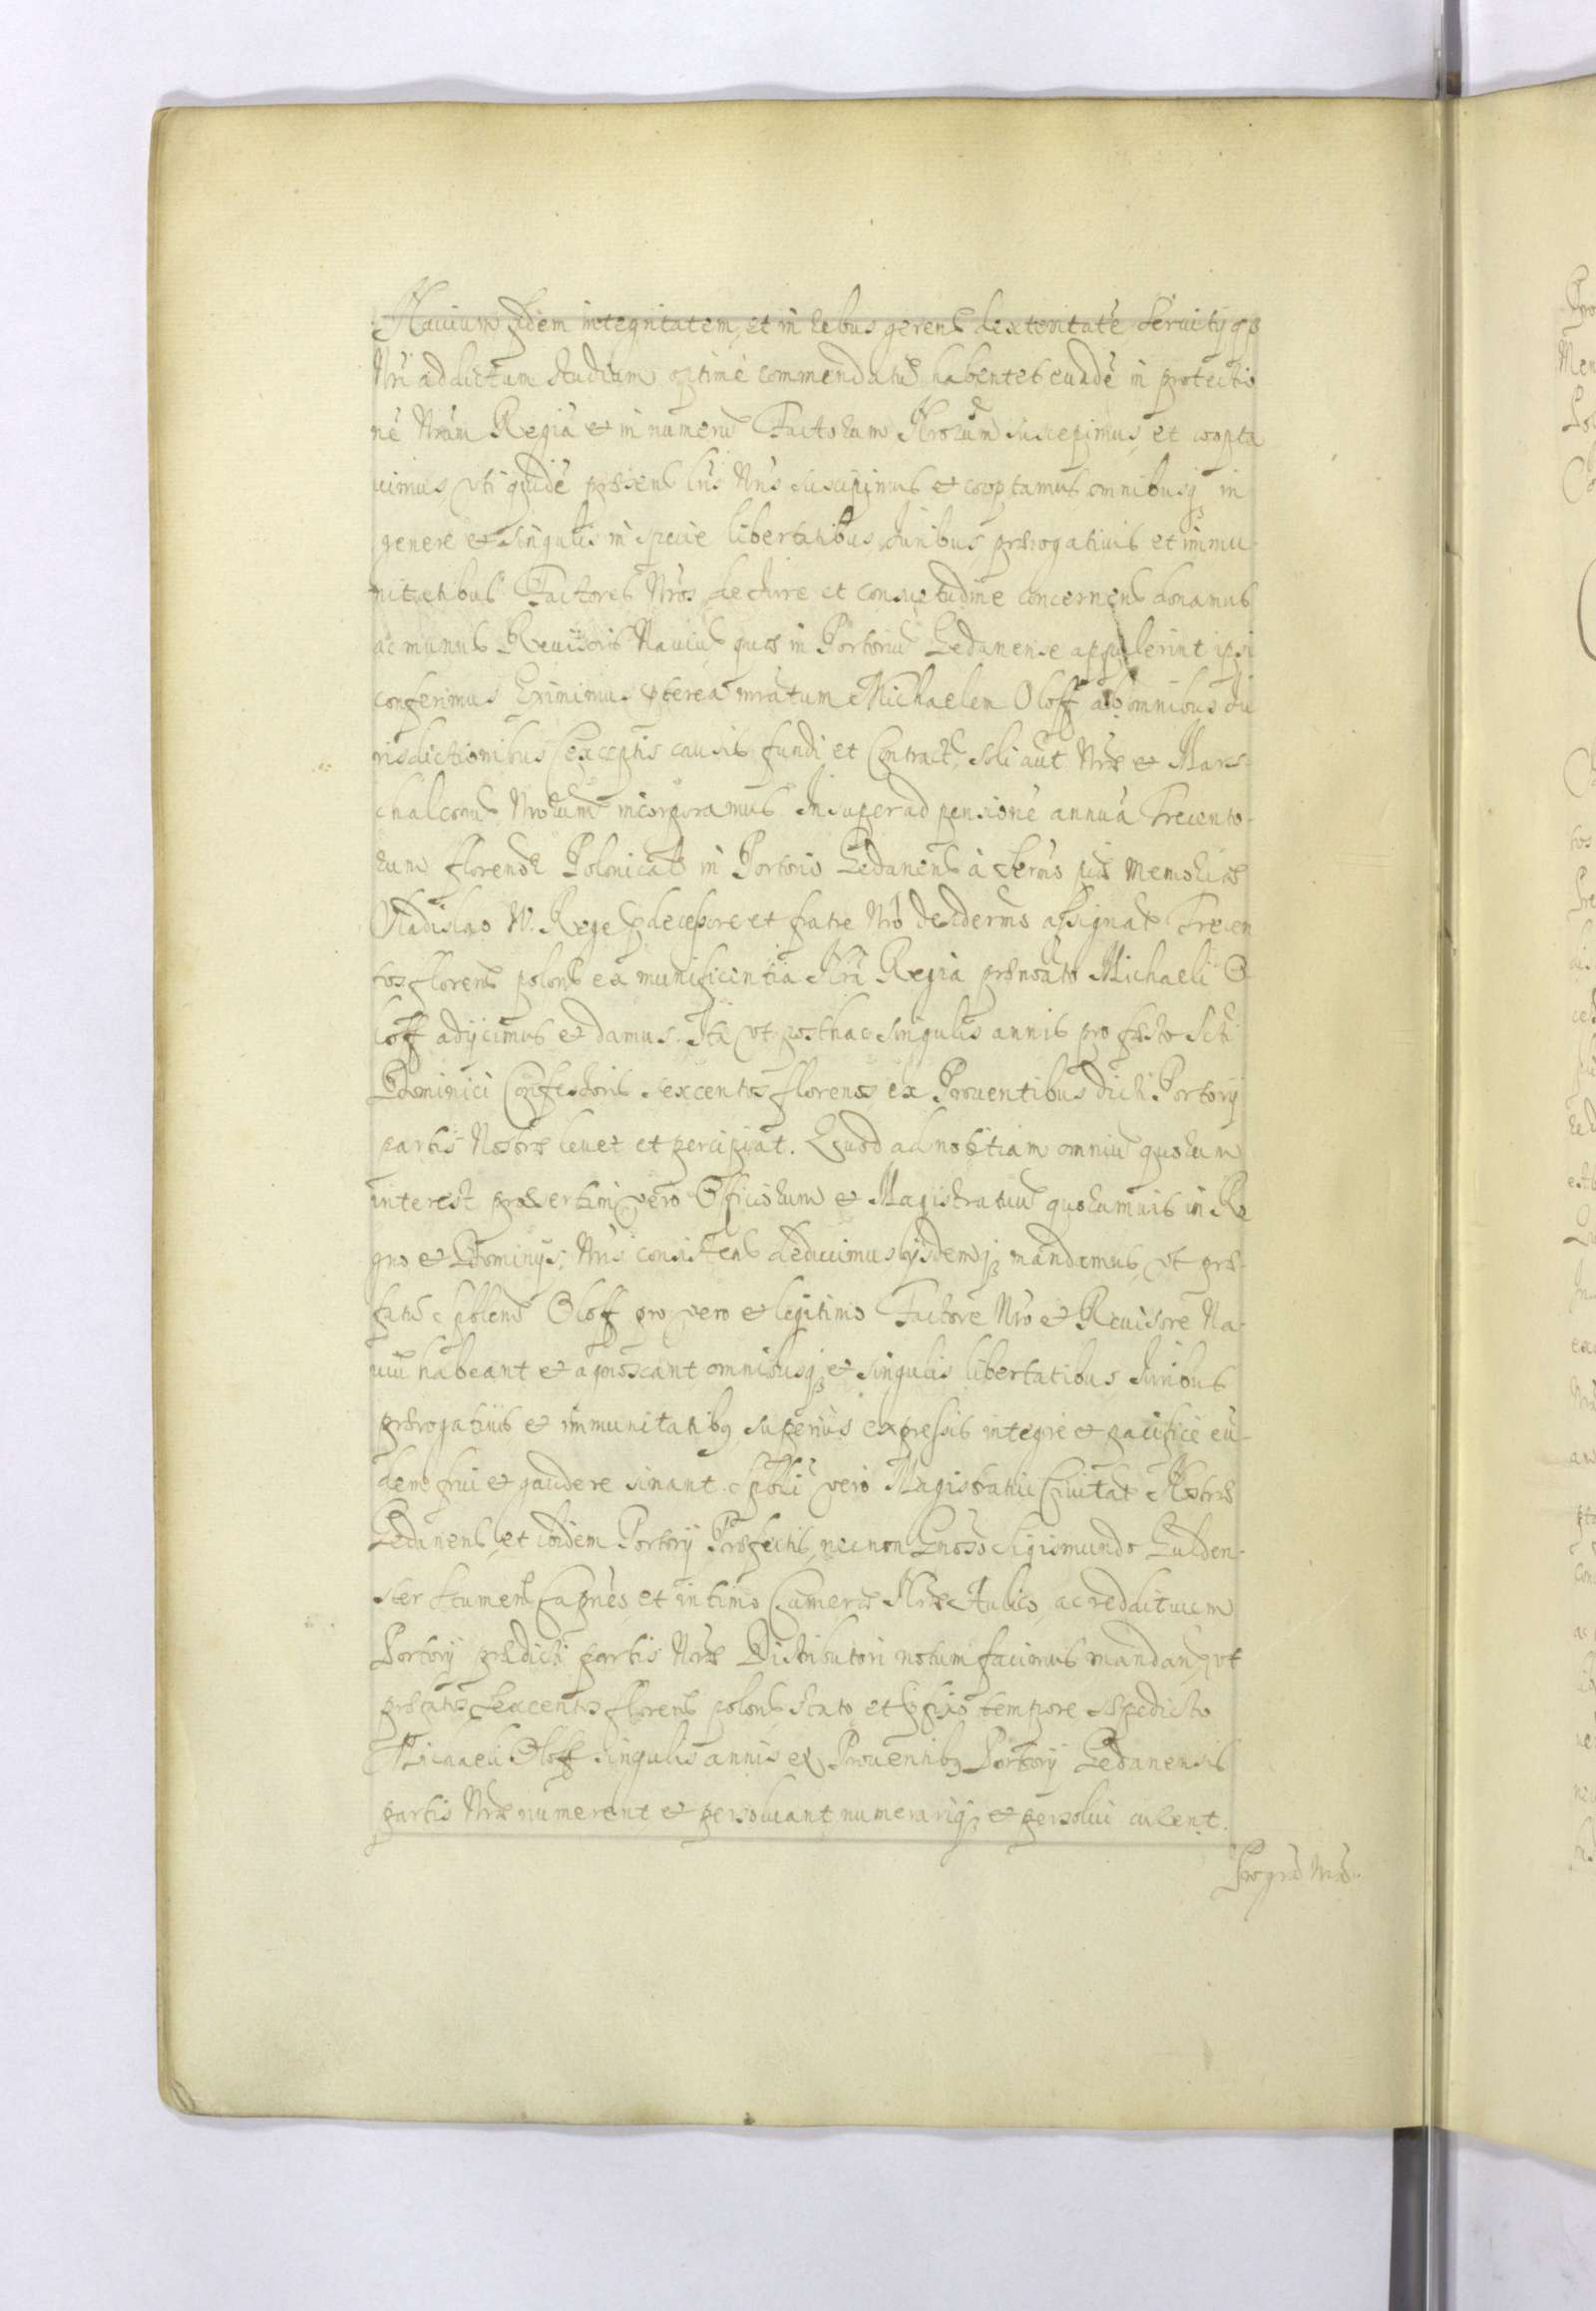 Nauium fidem integritatem, et in rebus gerend dexteritatē seruitijqȝ
Nri addictum studium optimè commendatū habentes eundē in protectio
nē Nram Regiā et in numerū Factorum Nrorum suscepimus, et coopta
uimus, vti quidē præsent lris Nris suscipimus et cooptamus omnibusq in
genere et singulis in specie libertatibus, Iuribus, prærogatiuis et immu-
nitatibus Factores Nros de Iure et consuetudine concernent donamus
ac munus Reuisoris Nauiū, quæ in Portoriū Gedanense appulerint ipsi
conferimus. Eximimus pterea mratum Michaelem Oloff ab omnibus Iu
risdictionibus (exceptis causis fundi et Contract, soli aut Nræ et Mars-
chalcorū Nrorum incorporamus. Insuper ad pensionē annuā Trecento-
rum florenor Polonical in Portorio Gedanens à Sermo piæ Memoriæ
Vladislao IV. Rege pdecessore et fratre Nro desidermo assignat Trecen
tos florens polons ex munificentia Nra Regia prænoato Michaeli O
loff adijcimus et damus. Ita vt posthac singulis annis pro festo Scti
Dominici Confessoris sexcentos florenos ex Prouentibus dicti Portorij
partis Nostræ leuet et percipiat. Quod ad notitiam omniū quorum
interest præsertim vero Officiorum et Magistratuū quorumuis in Re
gno et Dominijs Nris consistens deducimus ijsdemqȝ mandamus, vt præ-
fatū Oloff pro vero et legitimo Factore Nro et Reuisore Na-
uiū habeant et agnoscant omnibusqȝ et singulis libertatibus Iuribus
prærogatiuis et immunitatibȝ superius expressis integrè et pacificè eu-
dem frui et gaudere sinant. Spbli vero Magistratui Ciuitat Nostræ
Gedanens, et ibidem Portorij Præfectis, nec non Gnoso Sigismundo Gulden-
ster Stumens Capneo et intimo Cameræ Nræ Aulico, ac reddituum
Portorij prædicti partis Nræ Distributori notum facimus mandan, vt
præfatos sexcentos florens polons stato et pfixo tempore
Michaeli Oloff singulis annis ex Prouentibȝ Portorij Gedanensis
partis Nræ numerent et persoluant numerariqȝ et persolui curent.
Pro grā Nrā.